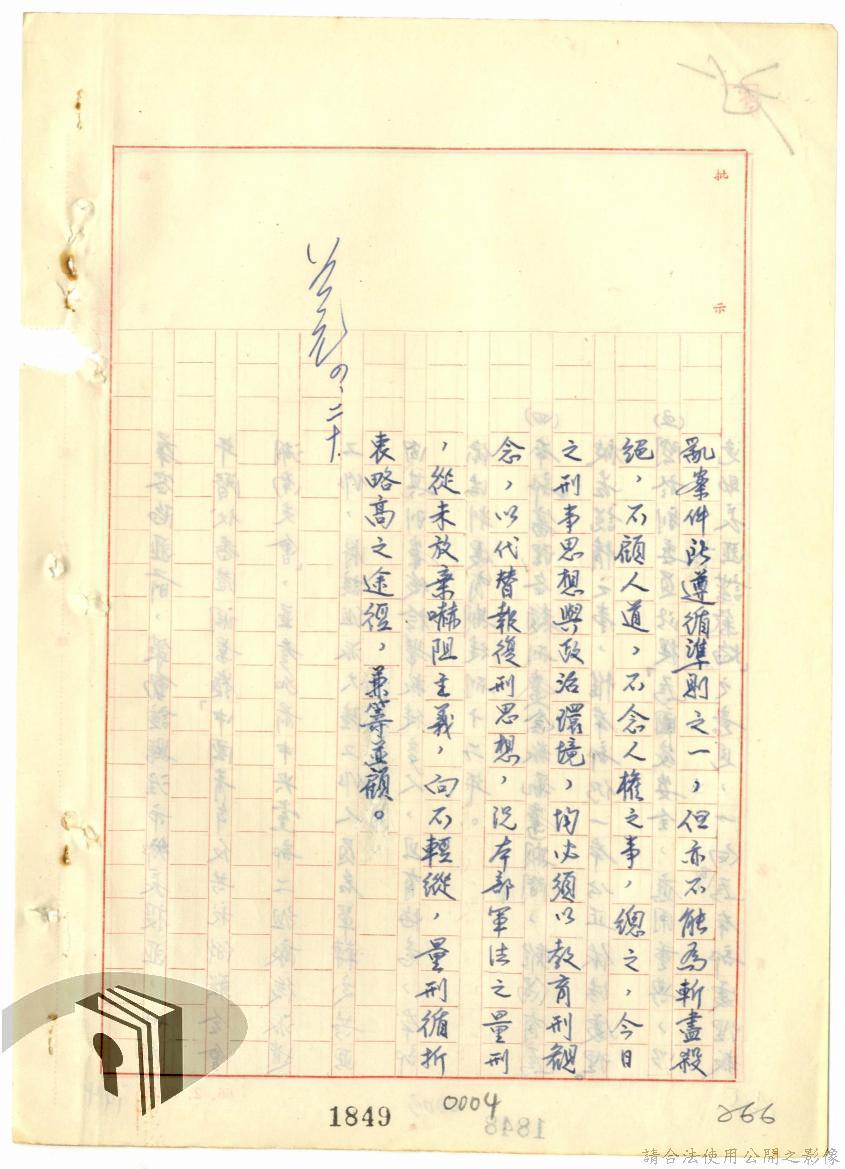 批示
亂案件所遵循準則之一，但亦不能為斬盡殺
絕，不顧人道，不念人權之事，總之，今日
之刑事思想與政治環境，均必須以教育刑觀
念，以代替報復刑思想，況本部軍法之量刑
，從未放棄嚇阻主義，向不輕縱，量刑循折
衷略高之途徑，兼籌並顧。
四、二十
0004
1849
266
請合法使用公開之影像